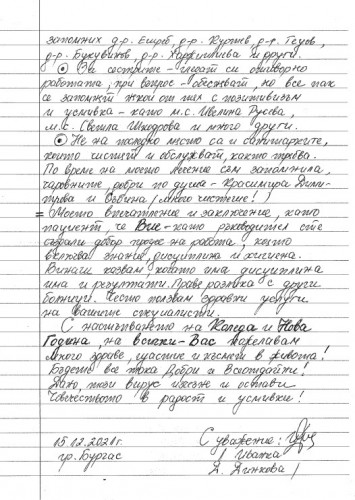 запомних д-р. Ешреф, д-р. Куртев, д-р.
д-р. Букувинов, д-р. и други.
⊙ Ве сестрите – гледат си отговорно
работата, при въпрос – обясняват, но все пак
се запомнят някои от тях с позитивизъм
и усмивка – като м.с. Ивелина Русева,
м.с. Светла Шкодрова и много други.
⊙ Не на последно място са и санитарките,
които чистят и обслужват, както трябва.
По време на моето лечение съм запомнила,
чаровните, добри по душа – Красимира Дими-
трова и / много чистене! /
= Моето впечатление и заключение, като
пациент, че Вие – като ръководител сте
създали добър процес на работа, който
включва знание, дисциплина и хигиена.
Винаги казвам, когато има дисциплина
има и резултати. Правя разлика с други
болници. Често ползвам здравни услуги
на вашите специалисти.
С настъпването на Коледа и Нова
Година, на всички Вас пожелавам
Много здраве, щастие и късмет в живота!
Бъдете все така Добри и Всеотдайни!
Дано, този вирус изчезне и остави
Човечеството в радост и усмивки!
15.12.2021г. С уважение:
гр. Бургас / Иванка
Д. Динкова /